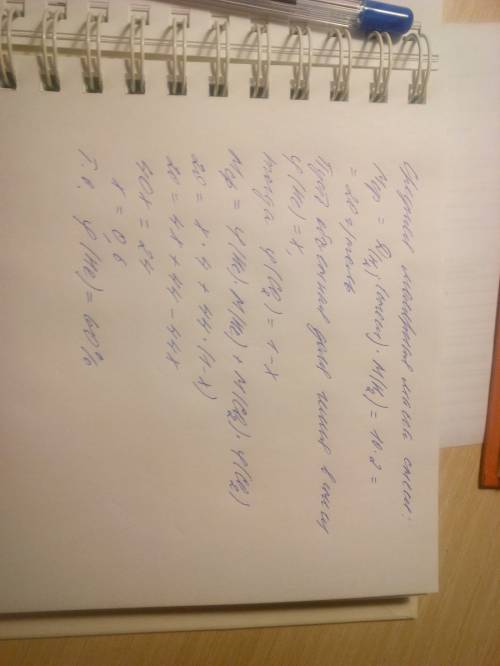 Средняя молярная масса смеси:
Mср = D(H₂)(смеси) · M(H₂) = 10 · 2 =
= 20 г/моль
Пусть объемная доля гелия в смеси
φ(He) = x,
тогда φ(CO₂) = 1 - x
Mср = φ(He) · M(He) + M(CO₂) · φ(CO₂)
20 = x · 4 + 44 · (1 - x)
20 = 4x + 44 - 44x
40x = 24
x = 0,6
Т.е. φ(He) = 60%